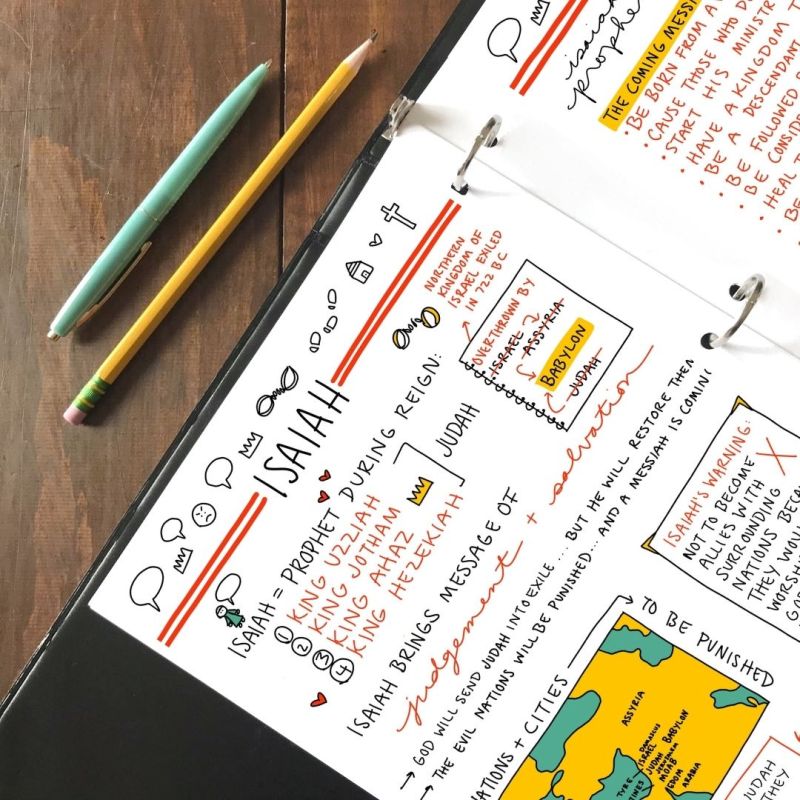 isaiah
prophe
THE COMING MESSI
• BE BORN FROM A
• CAUSE THOSE WHO D
• START HIS MINISTR
• HAVE A KINGDOM T
• BE A DESCENDANT
• BE FOLLOWED
• BE CONSID
• HEAL T
• BE
ISAIAH
ISAIAH = PROPHET DURING REIGN:
① KING UZZIAH
② KING JOTHAM
③ KING AHAZ
④ KING HEZEKIAH
JUDAH
NORTHERN
KINGDOM OF
ISRAEL EXILED
IN 722 BC
OVERTHROWN BY
ISRAEL
ASSYRIA
BABYLON
JUDAH
ISAIAH BRINGS MESSAGE OF
judgement + salvation
→ GOD WILL SEND JUDAH INTO EXILE... BUT HE WILL RESTORE THEM
→ THE EVIL NATIONS WILL BE PUNISHED...AND A MESSIAH IS COMING
ISAIAH'S WARNING:
NOT TO BECOME
ALLIES WITH
SURROUNDING
NATIONS BECA
THEY WOU
WORSHI
GO
NATIONS + CITIES → TO BE PUNISHED
ASSYRIA
DAMASCUS
ISRAEL
BABYLON
JERUSALEM
JUDAH
MOAB
TYRE
EDOM
ARABIA
TINES
JUDAH
THEY